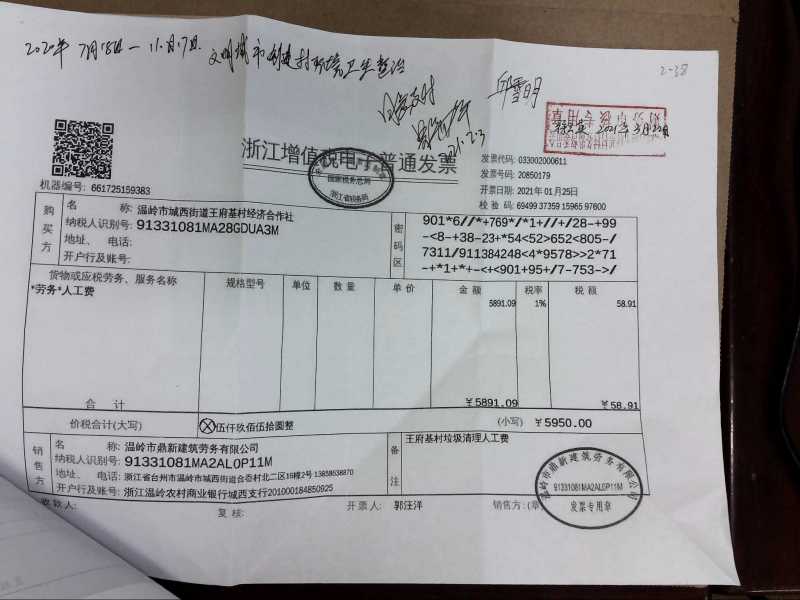 2020年 7月18日－11月17日. 文明城市创建村环境卫生整治
2-38
邱雪明
2021年3月22日
浙江增值税电子普通发票
国家税务总局
浙江省税务局
发票代码: 033002000611
发票号码: 20850179
开票日期: 2021年01月25日
校 验 码: 69499 37359 15965 97600
机器编号: 661725159383
购买方
名 称: 温岭市城西街道王府基村经济合作社
纳税人识别号: 91331081MA28GDUA3M
地址、 电话:
开户行及账号:
密码区
901*6//*+769*/*1+//+/28-+99
-<8-+38-23+*54<52>652<805-/
7311/911384248<4*9578>>2*71
-+*1+*+-<+<901+95+/7-753->/
货物或应税劳务、服务名称 规格型号 单位 数量 单价 金额 税率 税额
*劳务*人工费 5891.09 1% 58.91
合 计 ￥5891.09 ￥58.91
价税合计(大写) ⓧ伍仟玖佰伍拾圆整 (小写) ￥5950.00
销售方
名 称: 温岭市鼎新建筑劳务有限公司
纳税人识别号: 91331081MA2AL0P11M
地址、 电话: 浙江省台州市温岭市城西街道合岙村北二区16幢2号 13858638870
开户行及账号: 浙江温岭农村商业银行城西支行201000184850925
备注
王府基村垃圾清理人工费
温岭市鼎新建筑劳务有限公司
91331081MA2AL0P11M
发票专用章
收款人: 复核: 开票人: 郭汪洋 销售方: (章)